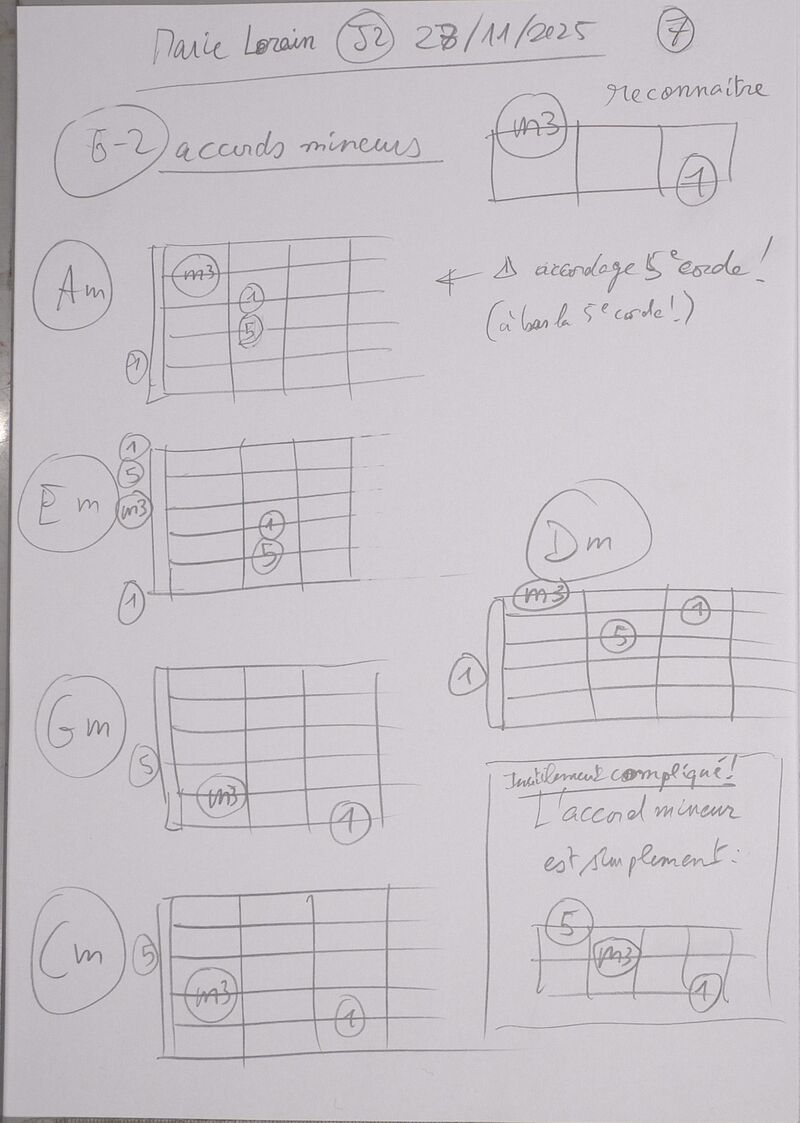 Marie Lorain J2 28/11/2025 7
reconnaitre
m3
1
6-2 accords mineurs
Am
m3
1
5
1
← ⚠ accordage 5e corde!
(à bas la 5e corde!)
Em
1
5
m3
1
5
1
Dm
m3
1
5
1
Gm
5
m3
1
Inutilement compliqué!
L'accord mineur
est simplement:
5
m3
1
Cm
5
m3
1